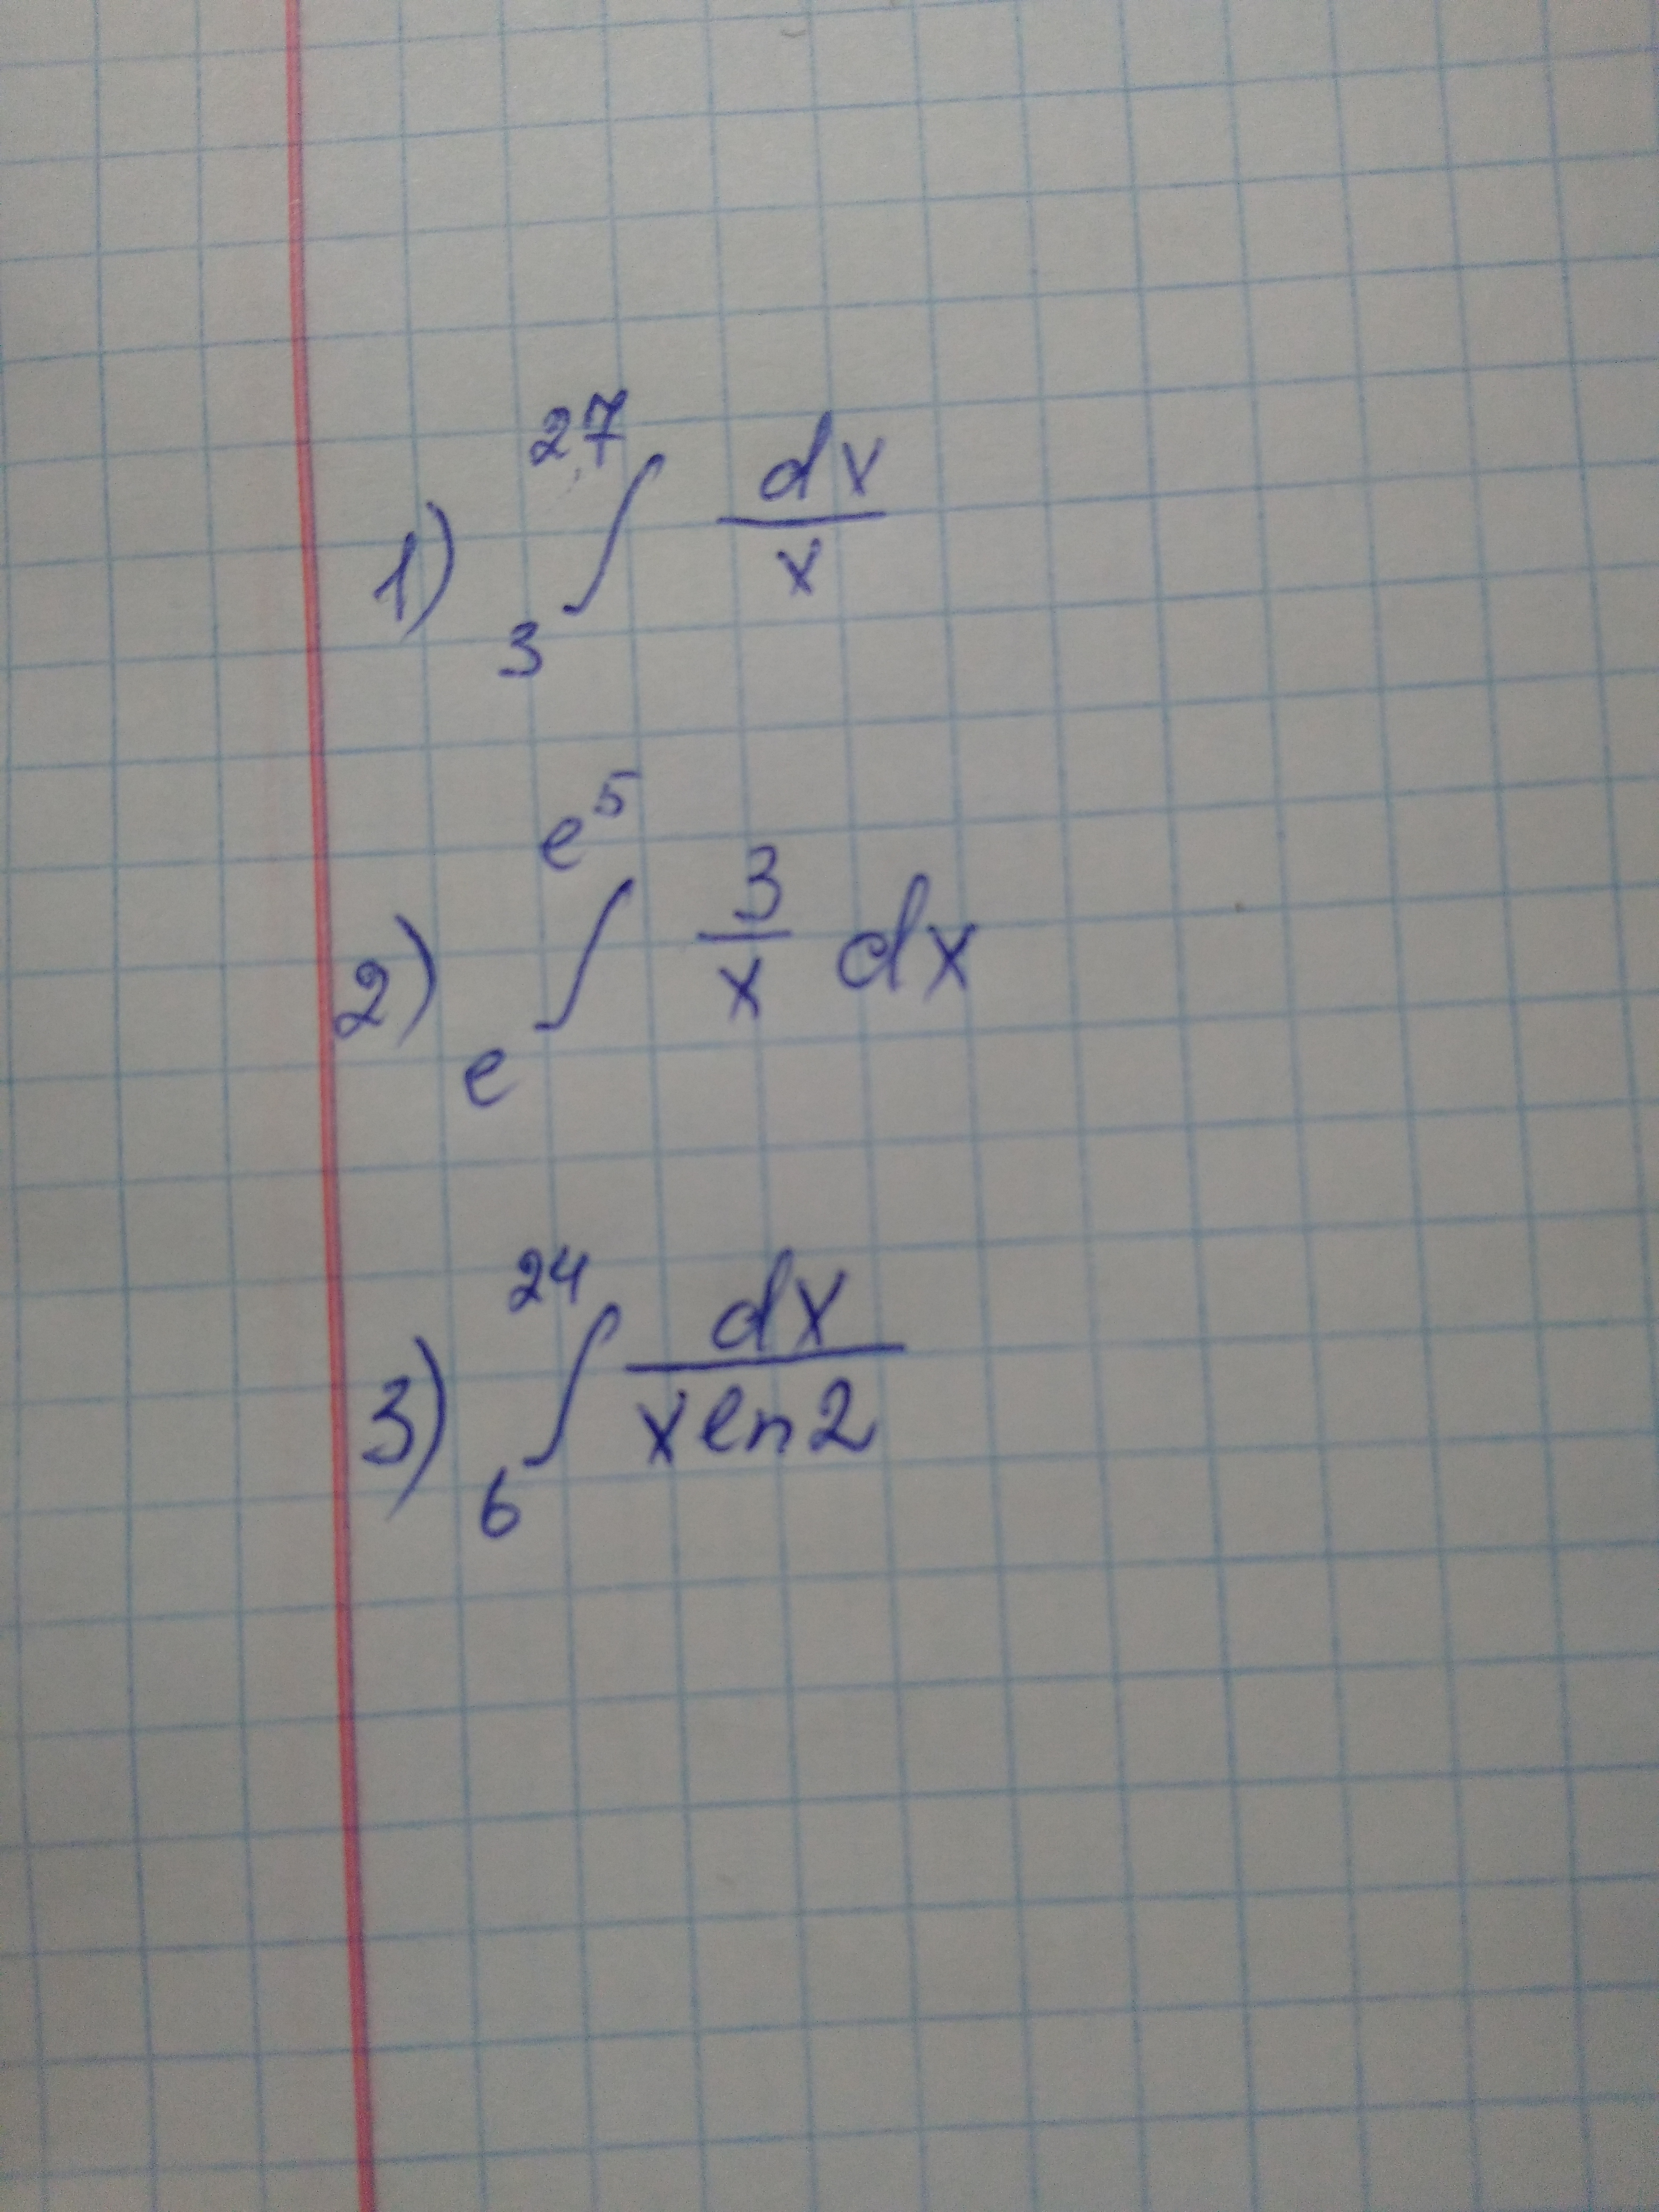 1) ₃∫²⁷ dx/x
2) ₑ∫^e⁵ 3/x dx
3) ₆∫²⁴ dx/(x ln2)